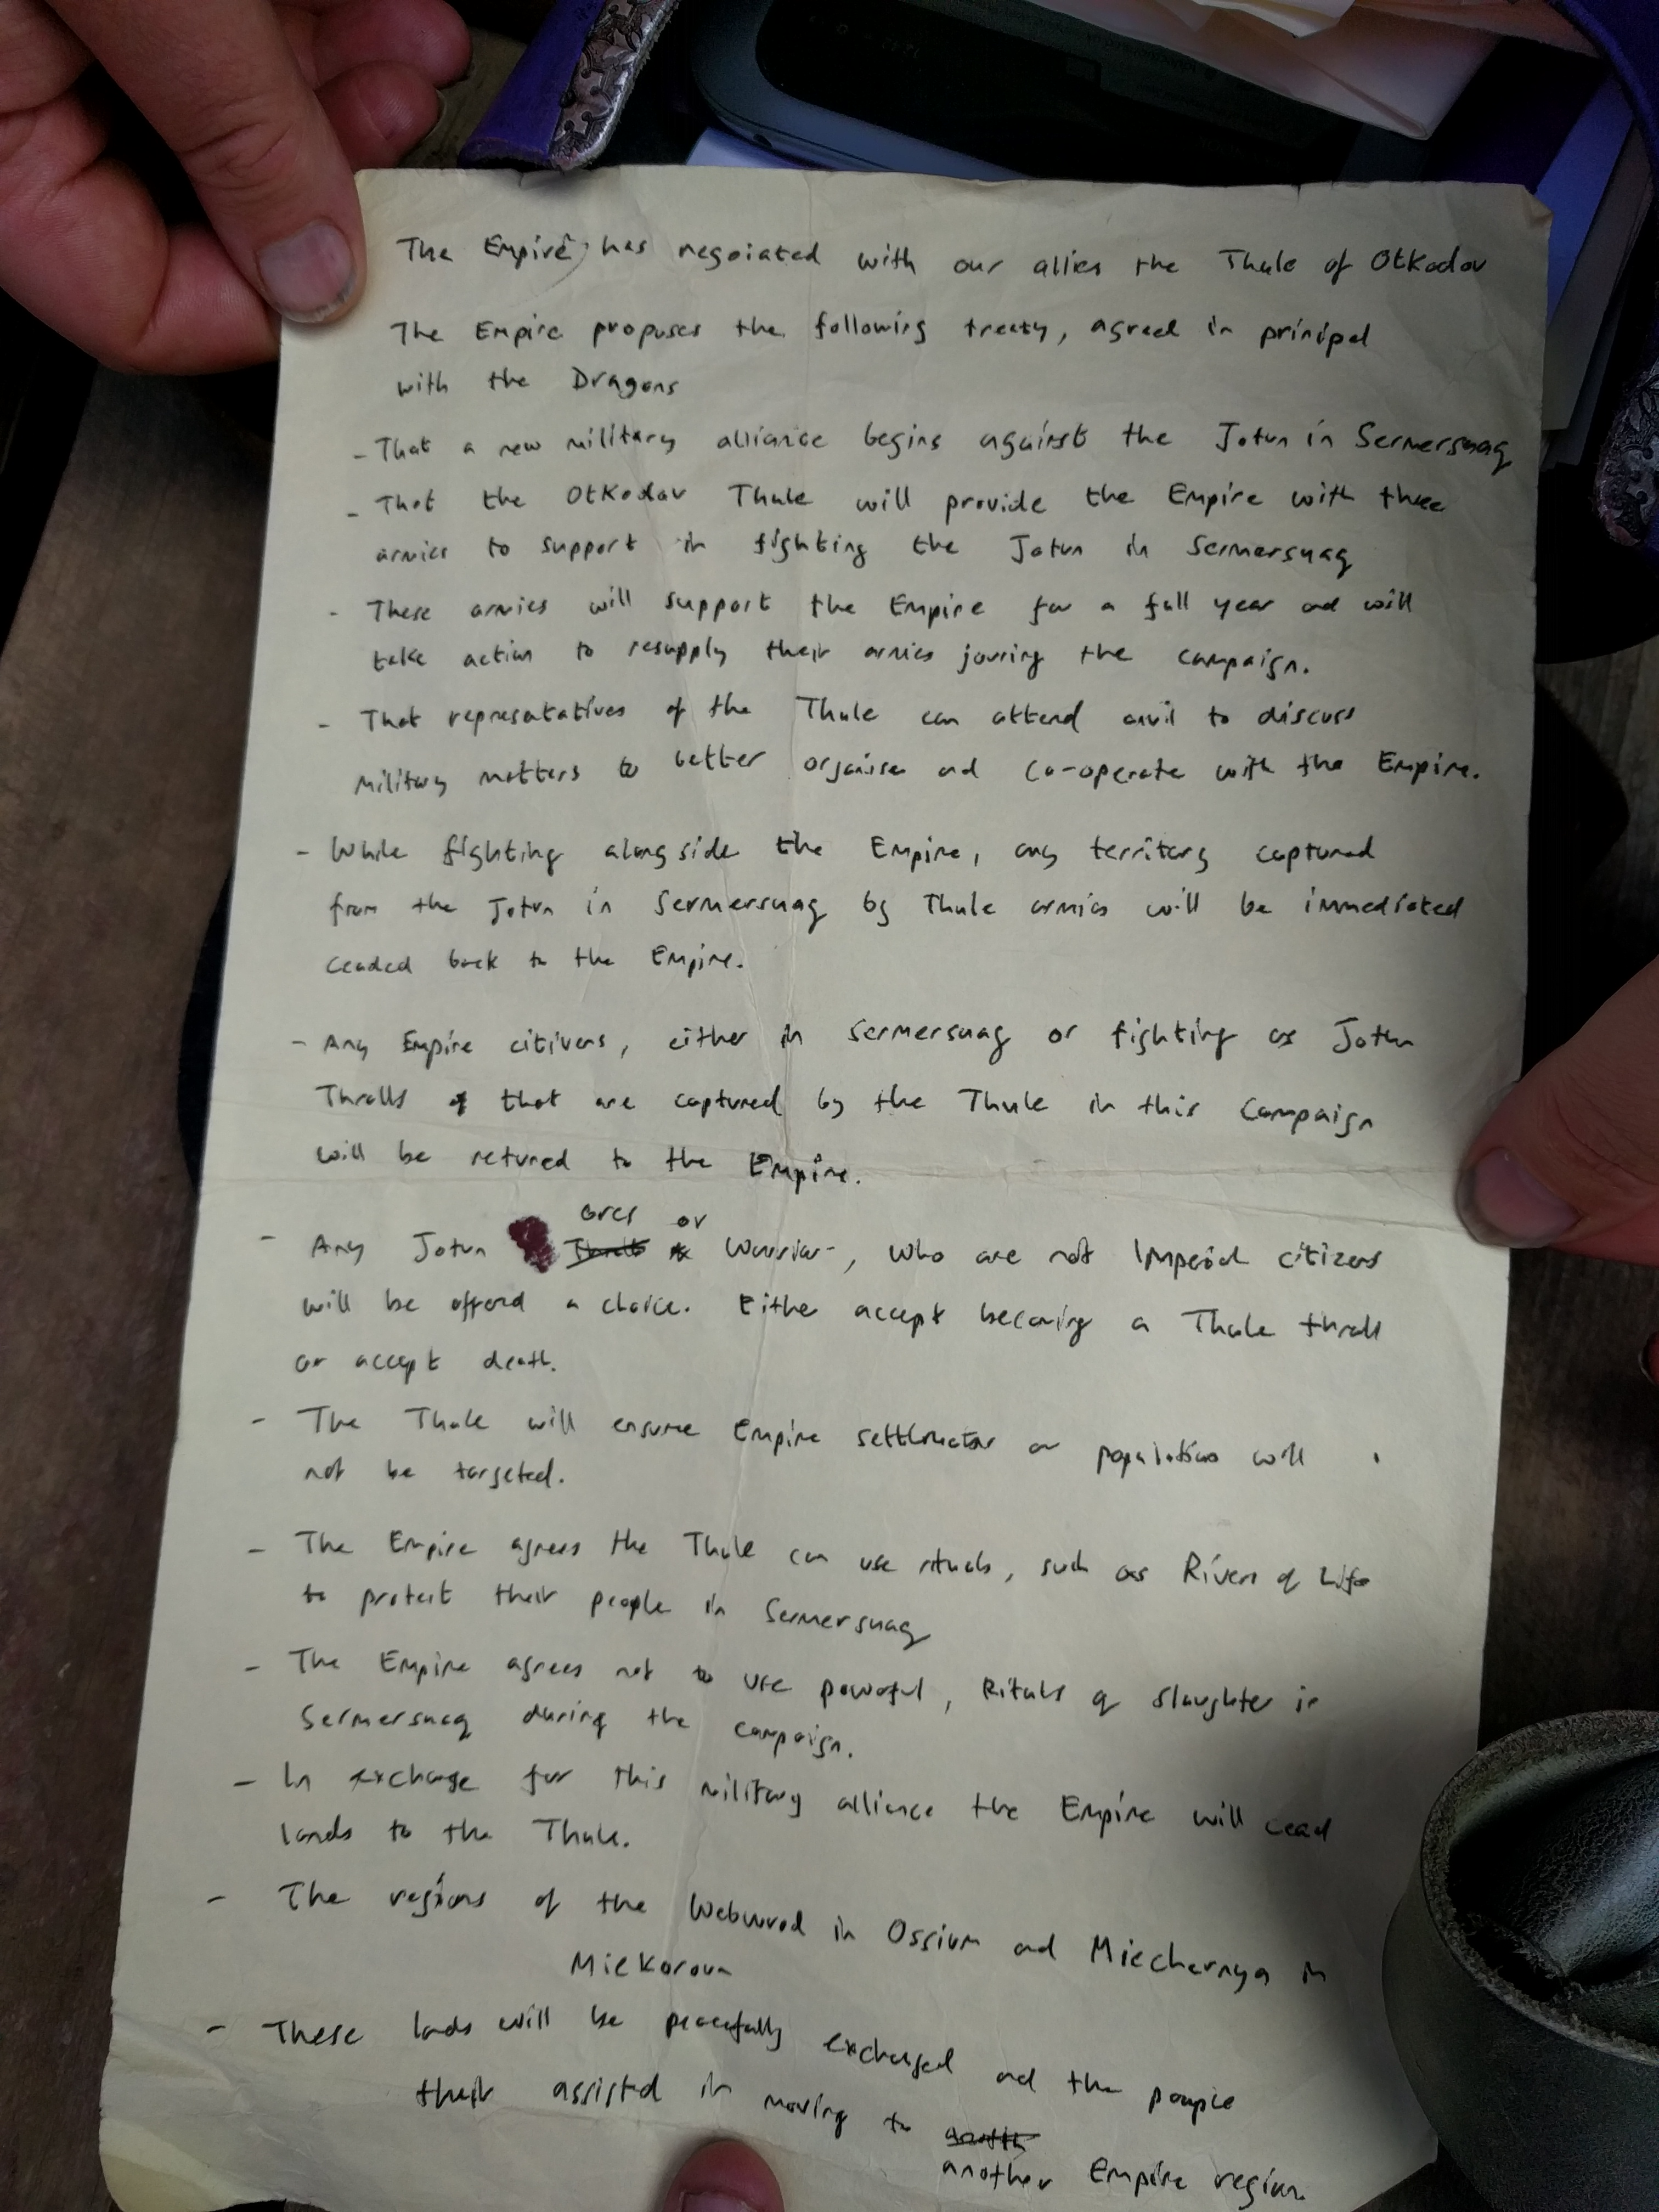 The Empire has negoiated with our allies the Thule of Otkodov
The Empire proposes the following treaty, agreed in prinipel
with the Dragons
- That a new military alliance begins against the Jotun in Sermersuaq
- That the Otkodov Thule will provide the Empire with three
armies to support in fighting the Jotun in Sermersuaq
- These armies will support the Empire for a full year and will
take action to resupply their armies jouring the campaign.
- That represatatives of the Thule can attend anvil to discuss
military matters to better organise and co-operate with the Empire.
- While fighting alongside the Empire, any territory captured
from the Jotun in Sermersuaq by Thule armies will be immediated
ceaded back to the Empire.
- Any Empire citizens, either in Sermersuaq or fighting as Jotun
Thralls that are captured by the Thule in this campaign
will be retured to the Empire.
orcs or
- Any Jotun Warrior, who are not Imperial citizens
will be offerd a choice. Either accept becoming a Thule thrall
or accept death.
- The Thule will ensure Empire settlments or population will
not be targeted.
- The Empire agrees the Thule can use rituals, such as Rivers of Life
to protect their people in Sermersuaq
- The Empire agrees not to use powerful, Rituals of slaughter in
Sermersuaq during the campaign.
- In exchange for this military alliance the Empire will cead
lands to the Thule.
- The regions of the Webwood in Ossium and Miechernya in
Miekarova
- These lands will be peacefully exchanged and the people
their assisted in moving to
another Empire region.